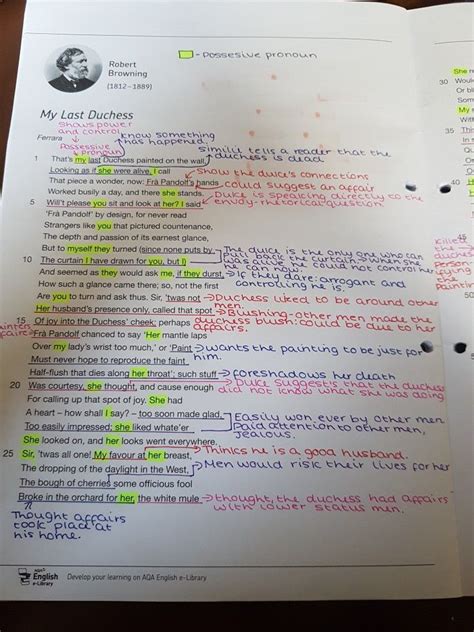 - Possesive pronoun
Robert
Browning
(1812–1889)
My Last Duchess
Shows power
and control
Possessive
pronoun
know something
has happened.
Ferrara
simili tells a reader that the
duchess is dead
1 That's my last Duchess painted on the wall,
Looking as if she were alive, I call
Show the duke's connections
That piece a wonder, now: Frà Pandolf's hands
could suggest an affair
Worked busily a day, and there she stands.
Duke is speaking directly to the
envoy-rhetorical question
5 Will't please you sit and look at her? I said
'Frà Pandolf' by design, for never read
Strangers like you that pictured countenance,
The depth and passion of its earnest glance,
But to myself they turned (since none puts by
The duke is the only one who can
pull back the curtain → when she
was alive he could not control her
he can now.
10 The curtain I have drawn for you, but I)
And seemed as they would ask me, if they durst,
If they dare: arrogant and
controlling he is.
How such a glance came there; so, not the first
Are you to turn and ask thus. Sir, 'twas not
Duchess liked to be around other
men.
Her husband's presence only, called that spot
Blushing-other men made the
duchess blush: could be due to her
affairs.
15 Of joy into the Duchess' cheek: perhaps
Frà Pandolf chanced to say 'Her mantle laps
Over my lady's wrist too much,' or 'Paint
wants the painting to be just for
him.
Must never hope to reproduce the faint
Half-flush that dies along her throat'; such stuff
foreshadows her death
20 Was courtesy, she thought, and cause enough
Duke suggests that the duchess
did not know what she was doing
For calling up that spot of joy. She had
A heart – how shall I say? – too soon made glad,
Easily won over by other men
Too easily impressed; she liked whate'er
Paid attention to other men,
jealous.
She looked on, and her looks went everywhere.
25 Sir, 'twas all one! My favour at her breast,
Thinks he is a good husband.
The dropping of the daylight in the West,
Men would risk their lives for her
The bough of cherries some officious fool
Broke in the orchard for her, the white mule
thought, the duchess had affairs
with lower status men.
Thought affairs
took place at
his home.
AQA
English
e-Library
Develop your learning on AQA English e-Library
She
30 Would
Or bl
Som
My
35
Quit
40
45
50